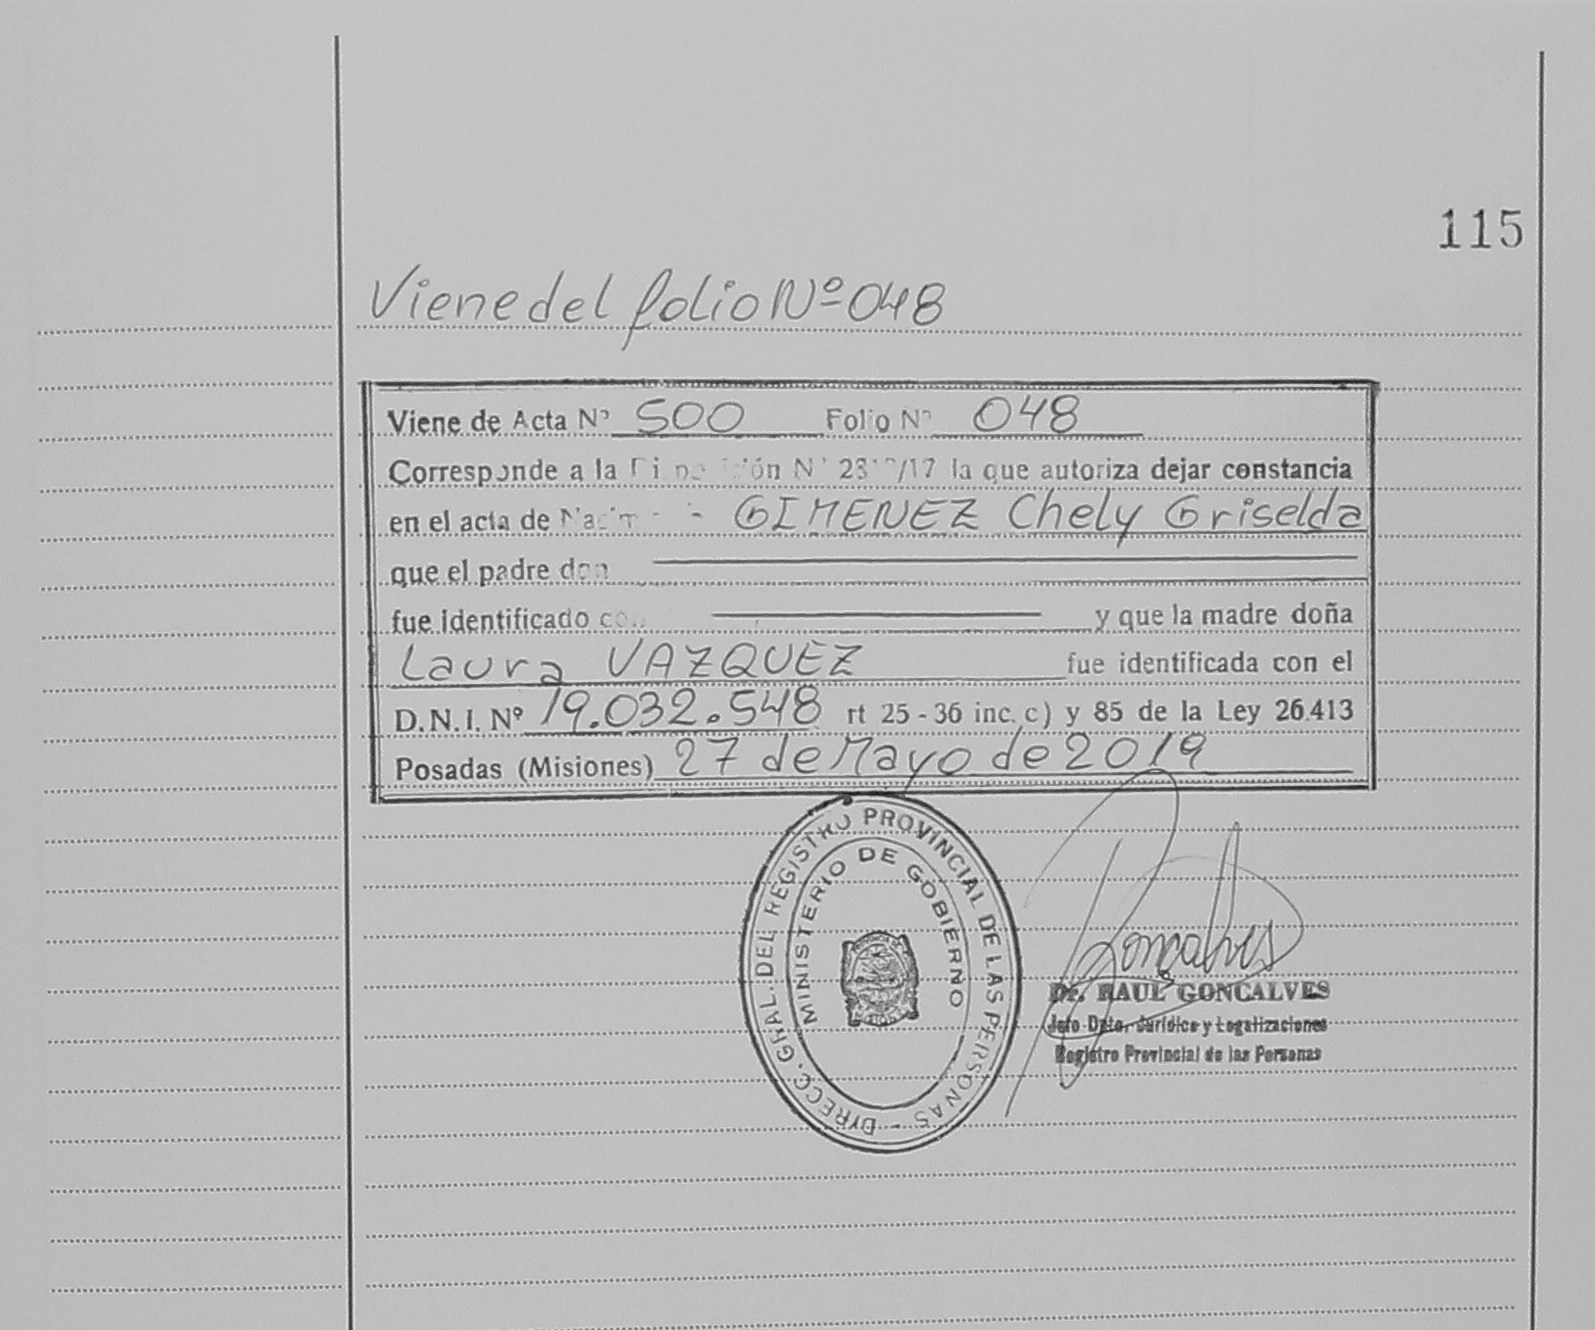 115
Viene del folio Nº 048
Viene de Acta Nº 500 Folio Nº 048
Corresponde a la /17 la que autoriza dejar constancia
en el acta de GIMENEZ Chely Griselda
que el padre don
fue identificado con y que la madre doña
Laura VAZQUEZ fue identificada con el
D.N.I. Nº 19.032.548 rt 25 - 36 inc. c) y 85 de la Ley 26.413
Posadas (Misiones) 27 de Mayo de 2019
DIRECC. GRAL. DEL REGISTRO PROVINCIAL DE LAS PERSONAS -
MINISTERIO DE GOBIERNO
Gonçalves
Dr. RAUL GONCALVES
Jefe Dpto. Jurídico y Legalizaciones
Registro Provincial de las Personas